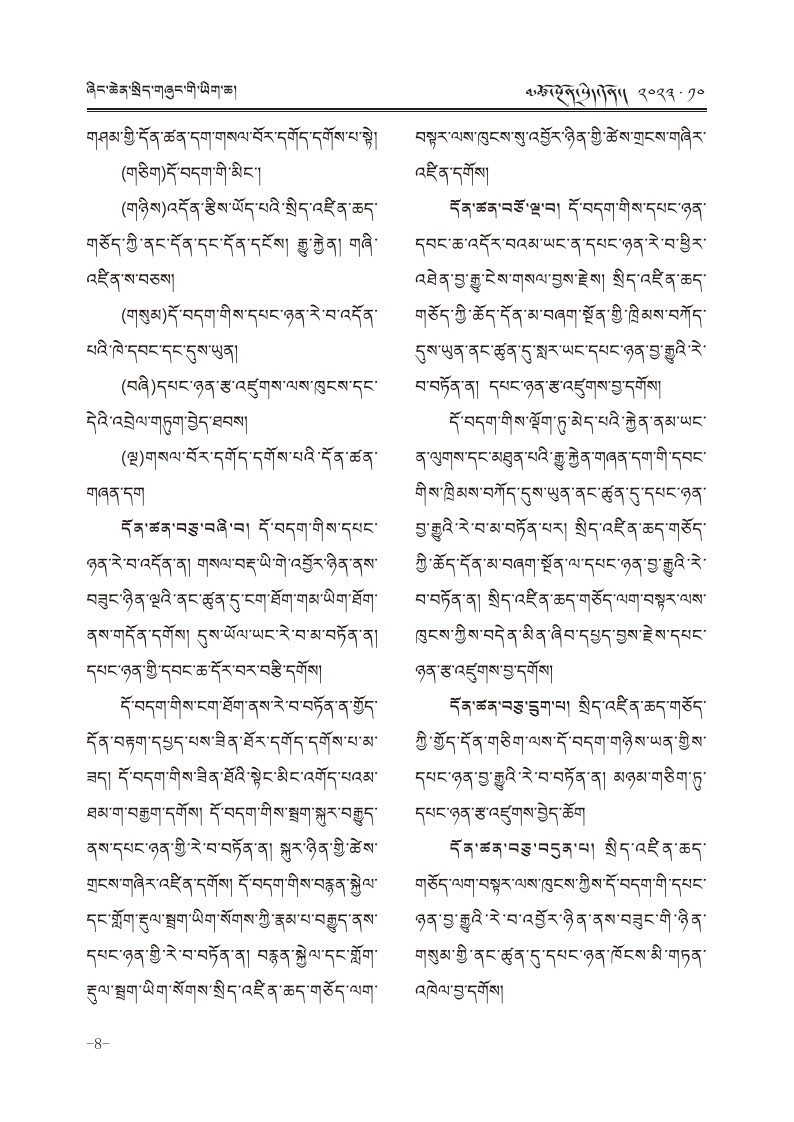 ཞིང་ཆེན་སྲིད་གཞུང་གི་ཡིག་ཆ།
༢༠༢༣ · ༡༠
གཤམ་གྱི་དོན་ཚན་དག་གསལ་བོར་དགོད་དགོས་པ་སྟེ།
(གཅིག)དོ་བདག་གི་མིང་།
(གཉིས)འདོན་རྩིས་ཡོད་པའི་སྲིད་འཛིན་ཆད་
གཅོད་ཀྱི་ནང་དོན་དང་དོན་དངོས། རྒྱུ་རྐྱེན། གཞི་
འཛིན་ས་བཅས།
(གསུམ)དོ་བདག་གིས་དཔང་ཉན་རེ་བ་འདོན་
པའི་ཁེ་དབང་དང་དུས་ཡུན།
(བཞི)དཔང་ཉན་རྩ་འཛུགས་ལས་ཁུངས་དང་
དེའི་འབྲེལ་གཏུག་བྱེད་ཐབས།
(ལྔ)གསལ་བོར་དགོད་དགོས་པའི་དོན་ཚན་
གཞན་དག
དོན་ཚན་བཅུ་བཞི་བ། དོ་བདག་གིས་དཔང་
ཉན་རེ་བ་འདོན་ན། གསལ་བརྡ་ཡི་གེ་འབྱོར་ཉིན་ནས་
བཟུང་ཉིན་ལྔའི་ནང་ཚུན་དུ་ངག་ཐོག་གམ་ཡིག་ཐོག་
ནས་གདོན་དགོས། དུས་ཡོལ་ཡང་རེ་བ་མ་བཏོན་ན།
དཔང་ཉན་གྱི་དབང་ཆ་དོར་བར་བརྩི་དགོས།
དོ་བདག་གིས་ངག་ཐོག་ནས་རེ་བ་བཏོན་ན་གྱོད་
དོན་བརྟག་དཔྱད་པས་ཟིན་ཐོར་དགོད་དགོས་པ་མ་
ཟད། དོ་བདག་གིས་ཟིན་ཐོའི་སྟེང་མིང་འགོད་པའམ་
ཐམ་ག་བརྒྱག་དགོས། དོ་བདག་གིས་སྦྲག་སྐུར་བརྒྱུད་
ནས་དཔང་ཉན་གྱི་རེ་བ་བཏོན་ན། སྐུར་ཉིན་གྱི་ཚེས་
གྲངས་གཞིར་འཛིན་དགོས། དོ་བདག་གིས་བརྙན་སྐྱེལ་
དང་གློག་རྡུལ་སྦྲག་ཡིག་སོགས་ཀྱི་རྣམ་པ་བརྒྱུད་ནས་
དཔང་ཉན་གྱི་རེ་བ་བཏོན་ན། བརྙན་སྐྱེལ་དང་གློག་
རྡུལ་སྦྲག་ཡིག་སོགས་སྲིད་འཛིན་ཆད་གཅོད་ལག་
བསྟར་ལས་ཁུངས་སུ་འབྱོར་ཉིན་གྱི་ཚེས་གྲངས་གཞིར་
འཛིན་དགོས།
དོན་ཚན་བཅོ་ལྔ་བ། དོ་བདག་གིས་དཔང་ཉན་
དབང་ཆ་འདོར་བའམ་ཡང་ན་དཔང་ཉན་རེ་བ་ཕྱིར་
འཐེན་བྱ་རྒྱུ་ངེས་གསལ་བྱས་རྗེས། སྲིད་འཛིན་ཆད་
གཅོད་ཀྱི་ཆོད་དོན་མ་བཞག་སྔོན་གྱི་ཁྲིམས་བཀོད་
དུས་ཡུན་ནང་ཚུན་དུ་སླར་ཡང་དཔང་ཉན་བྱ་རྒྱུའི་རེ་
བ་བཏོན་ན། དཔང་ཉན་རྩ་འཛུགས་བྱ་དགོས།
དོ་བདག་གིས་ལྡོག་ཏུ་མེད་པའི་རྐྱེན་ནམ་ཡང་
ན་ལུགས་དང་མཐུན་པའི་རྒྱུ་རྐྱེན་གཞན་དག་གི་དབང་
གིས་ཁྲིམས་བཀོད་དུས་ཡུན་ནང་ཚུན་དུ་དཔང་ཉན་
བྱ་རྒྱུའི་རེ་བ་མ་བཏོན་པར། སྲིད་འཛིན་ཆད་གཅོད་
ཀྱི་ཆོད་དོན་མ་བཞག་སྔོན་ལ་དཔང་ཉན་བྱ་རྒྱུའི་རེ་
བ་བཏོན་ན། སྲིད་འཛིན་ཆད་གཅོད་ལག་བསྟར་ལས་
ཁུངས་ཀྱིས་བདེན་མིན་ཞིབ་དཔྱད་བྱས་རྗེས་དཔང་
ཉན་རྩ་འཛུགས་བྱ་དགོས།
དོན་ཚན་བཅུ་དྲུག་པ། སྲིད་འཛིན་ཆད་གཅོད་
ཀྱི་གྱོད་དོན་གཅིག་ལས་དོ་བདག་གཉིས་ཡན་གྱིས་
དཔང་ཉན་བྱ་རྒྱུའི་རེ་བ་བཏོན་ན། མཉམ་གཅིག་ཏུ་
དཔང་ཉན་རྩ་འཛུགས་བྱེད་ཆོག
དོན་ཚན་བཅུ་བདུན་པ། སྲིད་འཛིན་ཆད་
གཅོད་ལག་བསྟར་ལས་ཁུངས་ཀྱིས་དོ་བདག་གི་དཔང་
ཉན་བྱ་རྒྱུའི་རེ་བ་འབྱོར་ཉིན་ནས་བཟུང་གི་ཉིན་
གསུམ་གྱི་ནང་ཚུན་དུ་དཔང་ཉན་ཁོངས་མི་གཏན་
འཁེལ་བྱ་དགོས།
–8–